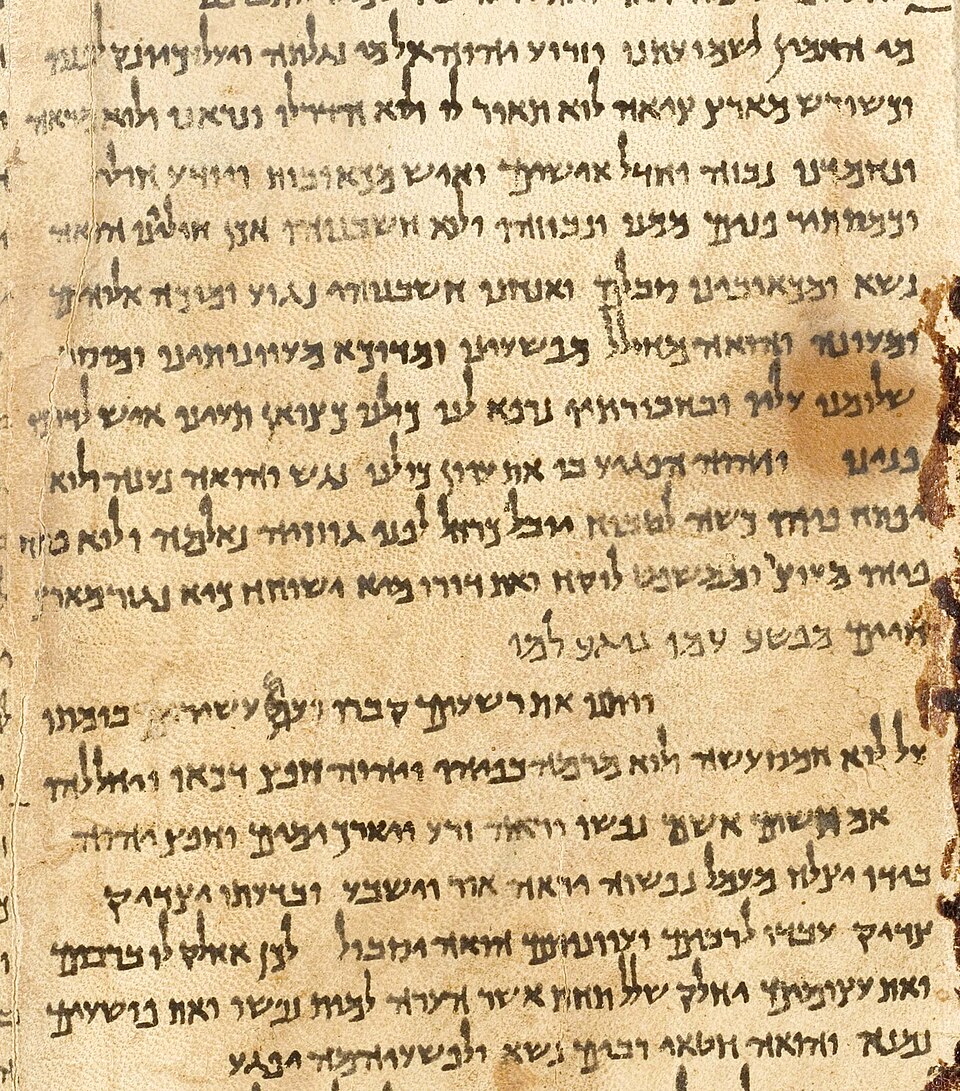 מי האמין לשמועתנו וזרוע יהוה אל מי נגלתה ויעל כיונק לפניו
וכשורש מארץ ציאה לוא תואר לו ולוא הדר לו ונראנו ולוא מראה
ונחמדנו נבזה וחדל אישים ואיש מכאובות ויודע חולי
וכמסתיר פנים ממנו ונבוזהו ולוא חשבנוהו אכן חוליינו הואה
נשא ומכאובינו סבלם ואנחנו חשבנוהו נגוע ומוכה אלוהים
ומעונה והואה מחולל מפשעינו ומדוכא מעוונותינו ומוסר
שלומנו עליו ובחבורתיו נרפא לנו כולנו כצואן תעינו איש לדרכו
פנינו ויהוה הפגיע בו את עוון כולנו נגש והואה נענה ולוא
יפתח פיהו כשה לטבוח יובל כרחל לפני גוזזיה נאלמה ולוא פתח
פיהו מעוצר וממשפט לוקח ואת דורו מיא ישוחח כיא נגזר מארץ
חיים מפשע עמו נוגע למו
ויתנו את רשעים קברו ועם עשירים בומתו
על לוא חמס עשה ולוא מרמה בפיהו ויהוה חפץ דכאו ויחללהו
אם תשים אשם נפשו יראה זרע ויארך ימים וחפץ יהוה
בידו יצלח מעמל נפשוה יראה אור וישבע ובדעתו יצדיק
צדיק עבדו לרבים ועוונותם הואה יסבול לכן אחלק לו ברבים
ואת עצומים יחלק שלל תחת אשר הערה למות נפשו ואת פושעים
נמנא והואה חטאי רבים נשא ולפשעיהמה יפגע